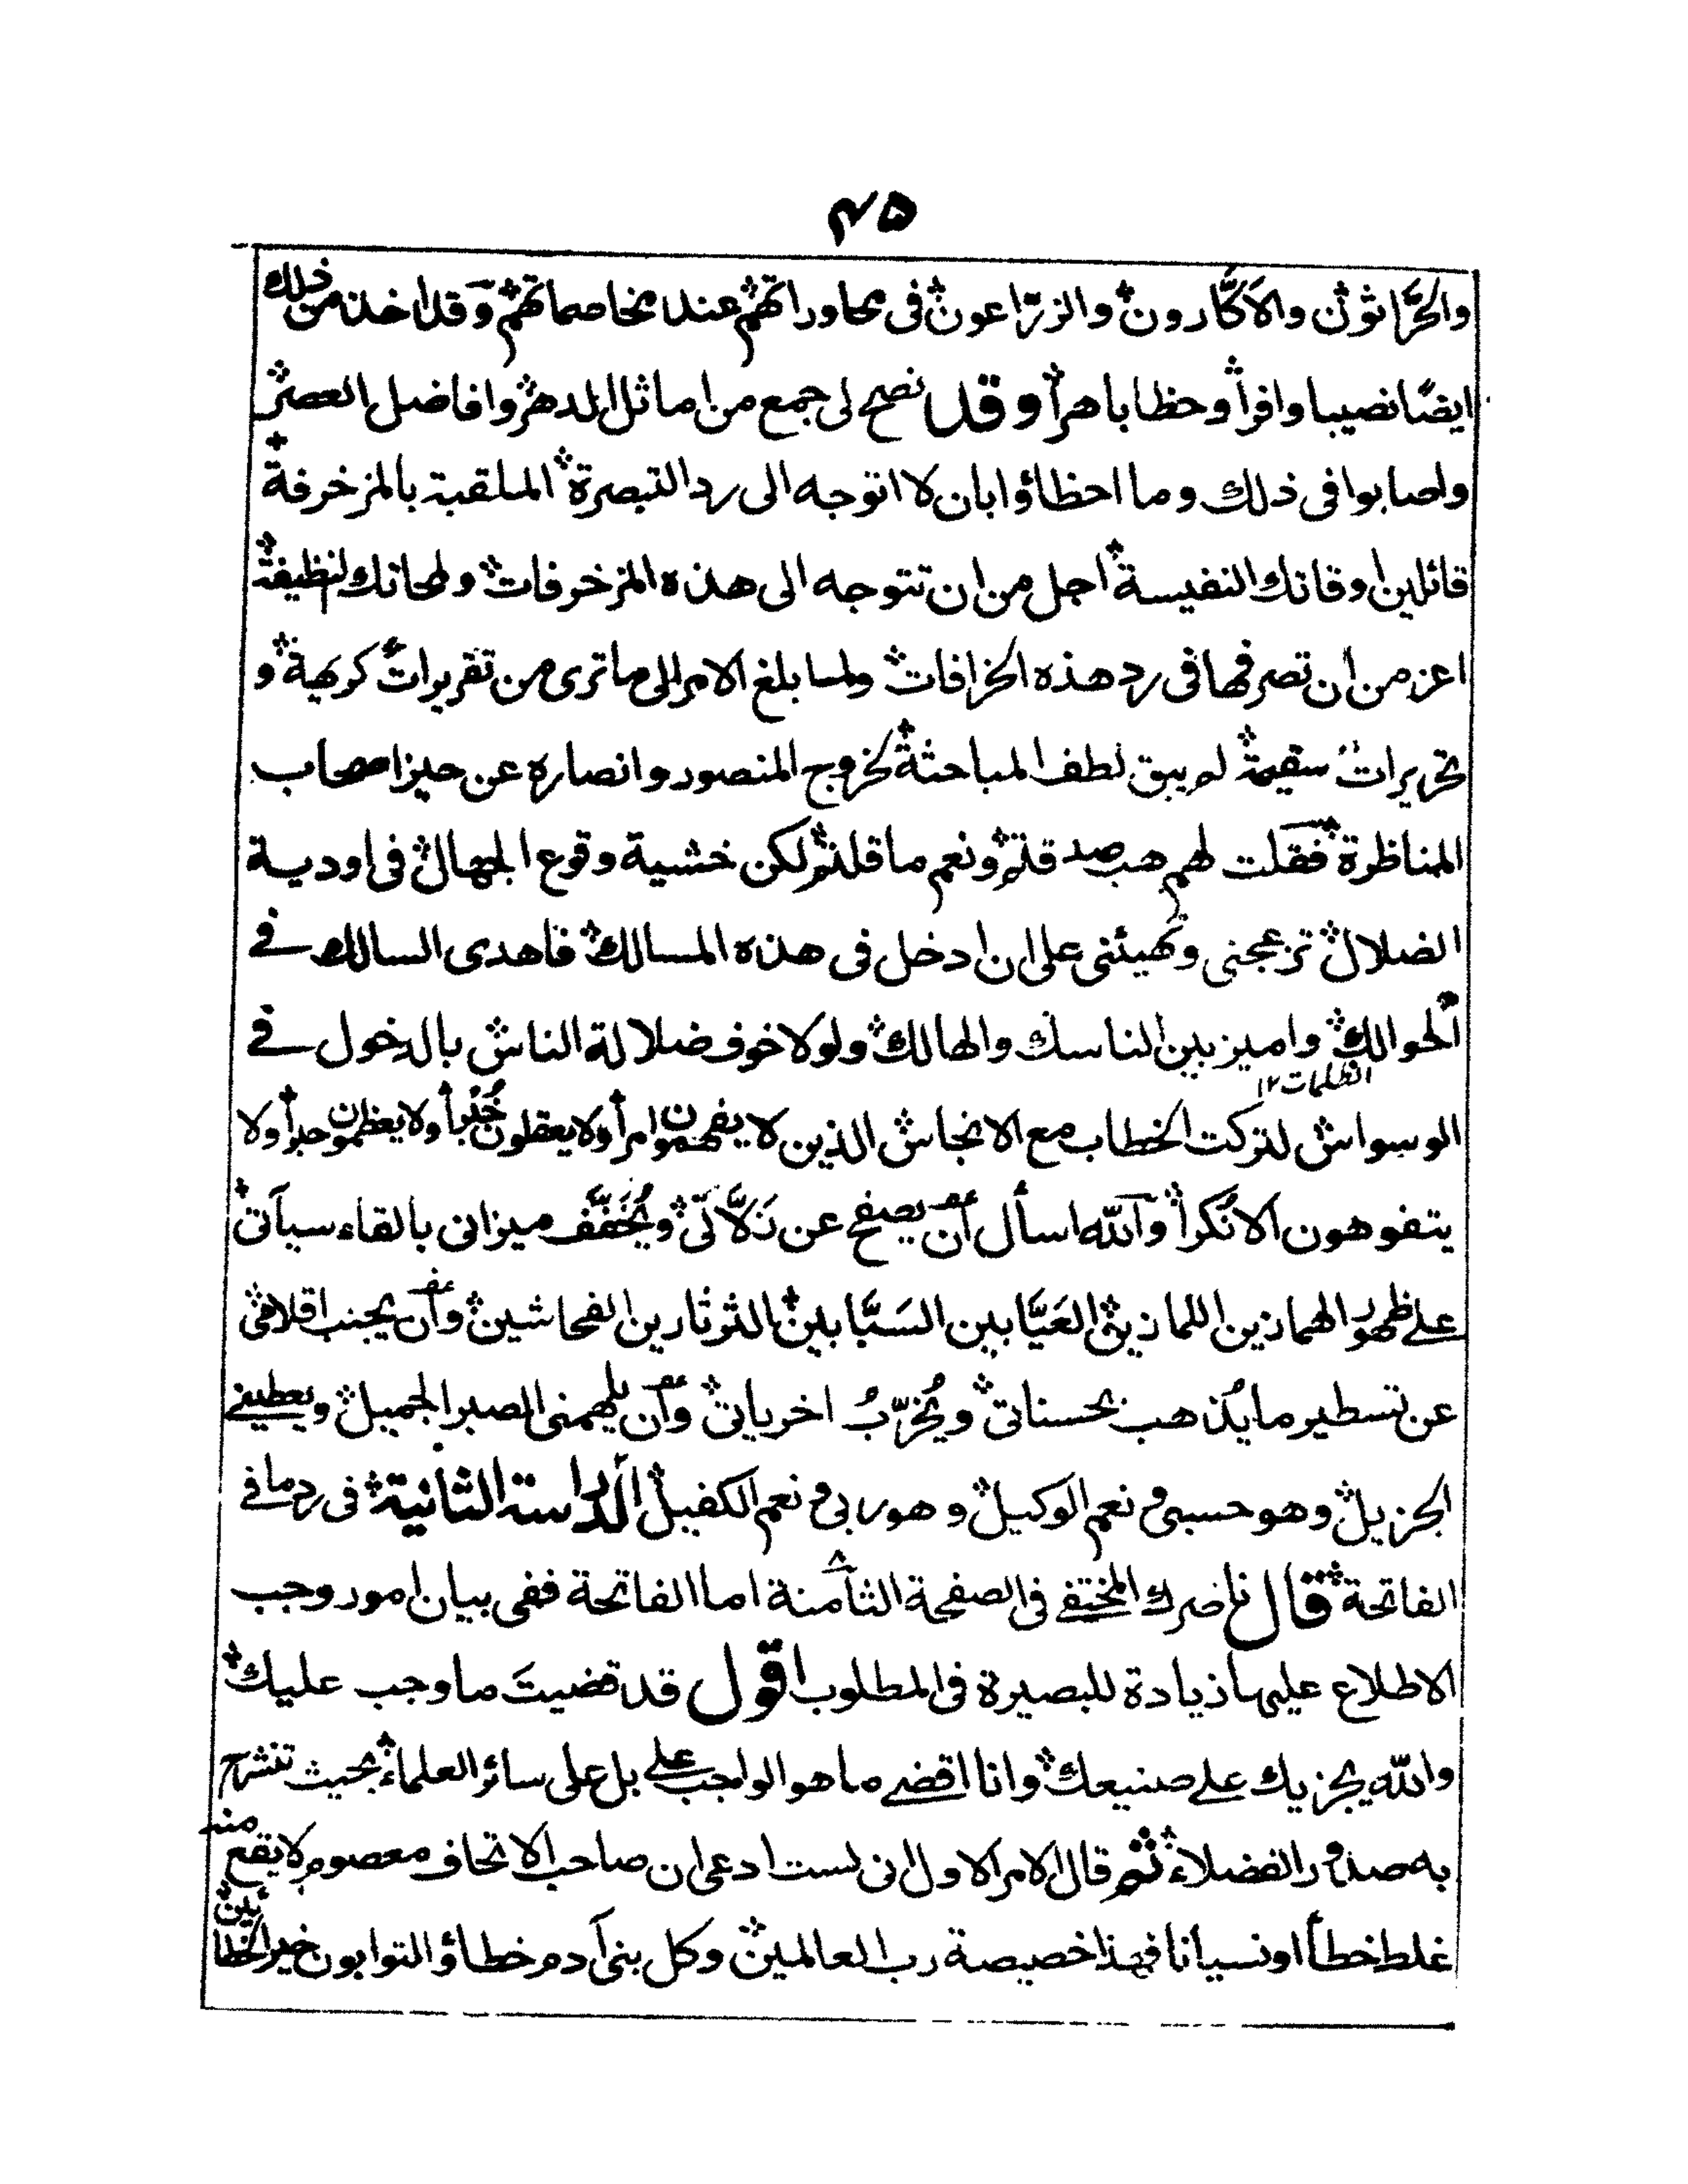 ٤٥
والحرّاثون والاكّارون والزرّاعون فى محاوراتهم عند مخاصماتهم وقد اخذ من ذلك
ايضًا نصيبا وافرا وحظا باهرا وقد نصح لى جمع من اماثل الدهر وافاضل العصر
واصابوا فى ذلك وما اخطاؤا بان لا اتوجه الى رد التبصرة الملقبة بالمزخرفة
قائلين اوقاتك النفيسة اجل من ان تتوجه الى هذه المزخرفات ولمحاتك النظيفة
اعز من ان تصرفها فى رد هذه الخرافات ولما بلغ الامر الى ما ترى من تقريرات كريهة و
تحريرات سقيمة لم يبق لطف المباحثة لخروج المنصور وانصاره عن حيز اصحاب
المناظرة فقلت لهم هب صدقتم ونعم ما قلتم لكن خشية وقوع الجهال فى اودية
الضلال تزعجنى وتهيئنى على ان ادخل فى هذه المسالك فاهدى السالك فے
الحوالك واميز بين الناسك والهالك ولولا خوف ضلالة الناس بالدخول فے
الظلمات ١٢
الوسواس لتركت الخطاب مع الانجاس الذين لا يفهمون امرا ولا يعقلون خُبْرا ولا يعظمون حبرا ولا
يتفوهون الا نُكرا والله اسأل أن يصفح عن زلّاتى ويُخَفِّف ميزانى بالقاء سيآتى
علے ظهور الهمازين اللمازين العَيَّابين السَبَّابين الثرثارين الفحاشين وأن يجنب اقلامى
عن تسطير ما يُذهب بحسناتى ويُخرّبُ اخرياتى وأن يلهمنى الصبر الجميل ويعطينے
الجزيل وهو حسبى ونعم الوكيل وهو ربى ونعم الكفيل الدراسة الثانية فى رد ما فے
الفاتحة قال ناصرك المختفے فى الصفحة الثامنة ٨ اما الفاتحة ففى بيان امور وجب
الاطلاع عليها زيادة للبصيرة فى المطلوب اقول قد قضيتَ ما وجب عليك
والله يجزيك علے صنيعك وانا اقضے ما هو الواجب علے بل على سائر العلماء بحيث تنشرح
به صدور الفضلاء ثم قال الامر الاول انى لست ادعى ان صاحب الاتحاف معصوم لا يقع منه
غلط خطأ او نسيانا فهذا خصيصة رب العالمين وكل بنى آدم خطاؤ التوابون خير الخطائين